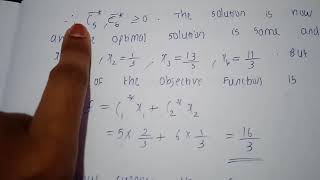 ∴ C̄₅*, C̄₆* ≥ 0. The solution is now
optimal solution is same and
x₂ = 1/3, x₃ = 13/3, x₆ = 11/3. But
of the objective function is
= C₁* x₁ + C₂* x₂
= 5 × 2/3 + 6 × 1/3 = 16/3